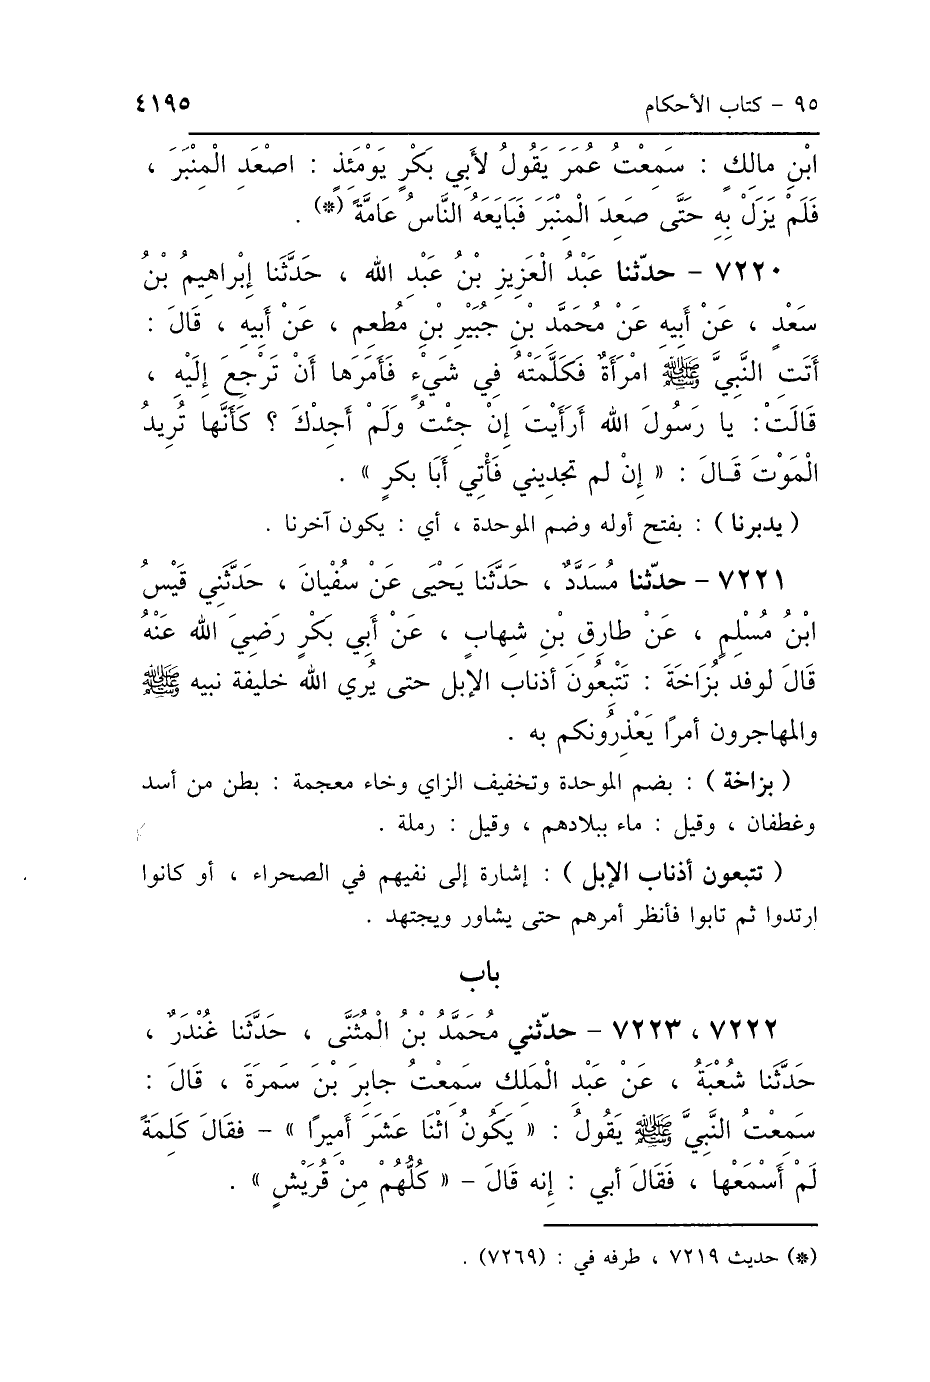 ٩٥ - كتاب الأحكام ٤١٩٥
ابْنِ مالِكٍ : سَمِعْتُ عُمَرَ يَقُولُ لأَبِي بَكْرٍ يَوْمَئِذٍ : اصْعَدِ الْمِنْبَرَ ،
فَلَمْ يَزَلْ بِهِ حَتَّى صَعِدَ الْمِنْبَرَ فَبَايَعَهُ النَّاسُ عَامَّةً (*) .
٧٢٢٠ - حدّثنا عَبْدُ الْعَزِيزِ بْنُ عَبْدِ الله ، حَدَّثَنا إِبْراهِيمُ بْنُ
سَعْدٍ ، عَنْ أَبِيهِ عَنْ مُحَمَّدِ بْنِ جُبَيْرِ بْنِ مُطْعِمٍ ، عَنْ أَبِيهِ ، قَالَ :
أَتَتِ النَّبِيَّ ﷺ امْرَأَةٌ فَكَلَّمَتْهُ فِي شَيْءٍ فَأَمَرَها أَنْ تَرْجِعَ إِلَيْهِ ،
قَالَتْ: يا رَسُولَ الله أَرَأَيْتَ إِنْ جِئْتُ وَلَمْ أَجِدْكَ ؟ كَأَنَّها تُرِيدُ
الْمَوْتَ قَـالَ : « إِنْ لم تجديني فَأْتِي أَبَا بكرٍ » .
( يدبرنا ) : بفتح أوله وضم الموحدة ، أي : يكون آخرنا .
٧٢٢١ - حدّثنا مُسَدَّدٌ ، حَدَّثَنا يَحْيَى عَنْ سُفْيانَ ، حَدَّثَنِي قَيْسُ
ابْنُ مُسْلِمٍ ، عَنْ طارِقِ بْنِ شهابٍ ، عَنْ أَبِي بَكْرٍ رَضِيَ الله عَنْهُ
قَالَ لوفد بُزَاخَةَ : تَتْبَعُونَ أذناب الإبل حتى يُري الله خليفة نبيه ﷺ
والمهاجرون أمرًا يَعْذِرُونكم به .
( بزاخة ) : بضم الموحدة وتخفيف الزاي وخاء معجمة : بطن من أسد
وغطفان ، وقيل : ماء ببلادهم ، وقيل : رملة .
( تتبعون أذناب الإبل ) : إشارة إلى نفيهم في الصحراء ، أو كانوا
ارتدوا ثم تابوا فأنظر أمرهم حتى يشاور ويجتهد .
باب
٧٢٢٢ ، ٧٢٢٣ - حدّثني مُحَمَّدُ بْنُ الْمُثَنَّى ، حَدَّثَنا غُنْدَرٌ ،
حَدَّثَنا شُعْبَةُ ، عَنْ عَبْدِ الْمَلِكِ سَمِعْتُ جابِرَ بْنَ سَمُرَةَ ، قَالَ :
سَمِعْتُ النَّبِيَّ ﷺ يَقُولُ : « يَكُونُ اثْنَا عَشَرَ أَمِيرًا » - فقَالَ كَلِمَةً
لَمْ أَسْمَعْها ، فَقَالَ أبي : إنه قَالَ - « كُلُّهُمْ مِنْ قُرَيْشٍ » .
(*) حديث ٧٢١٩ ، طرفه في : (٧٢٦٩) .